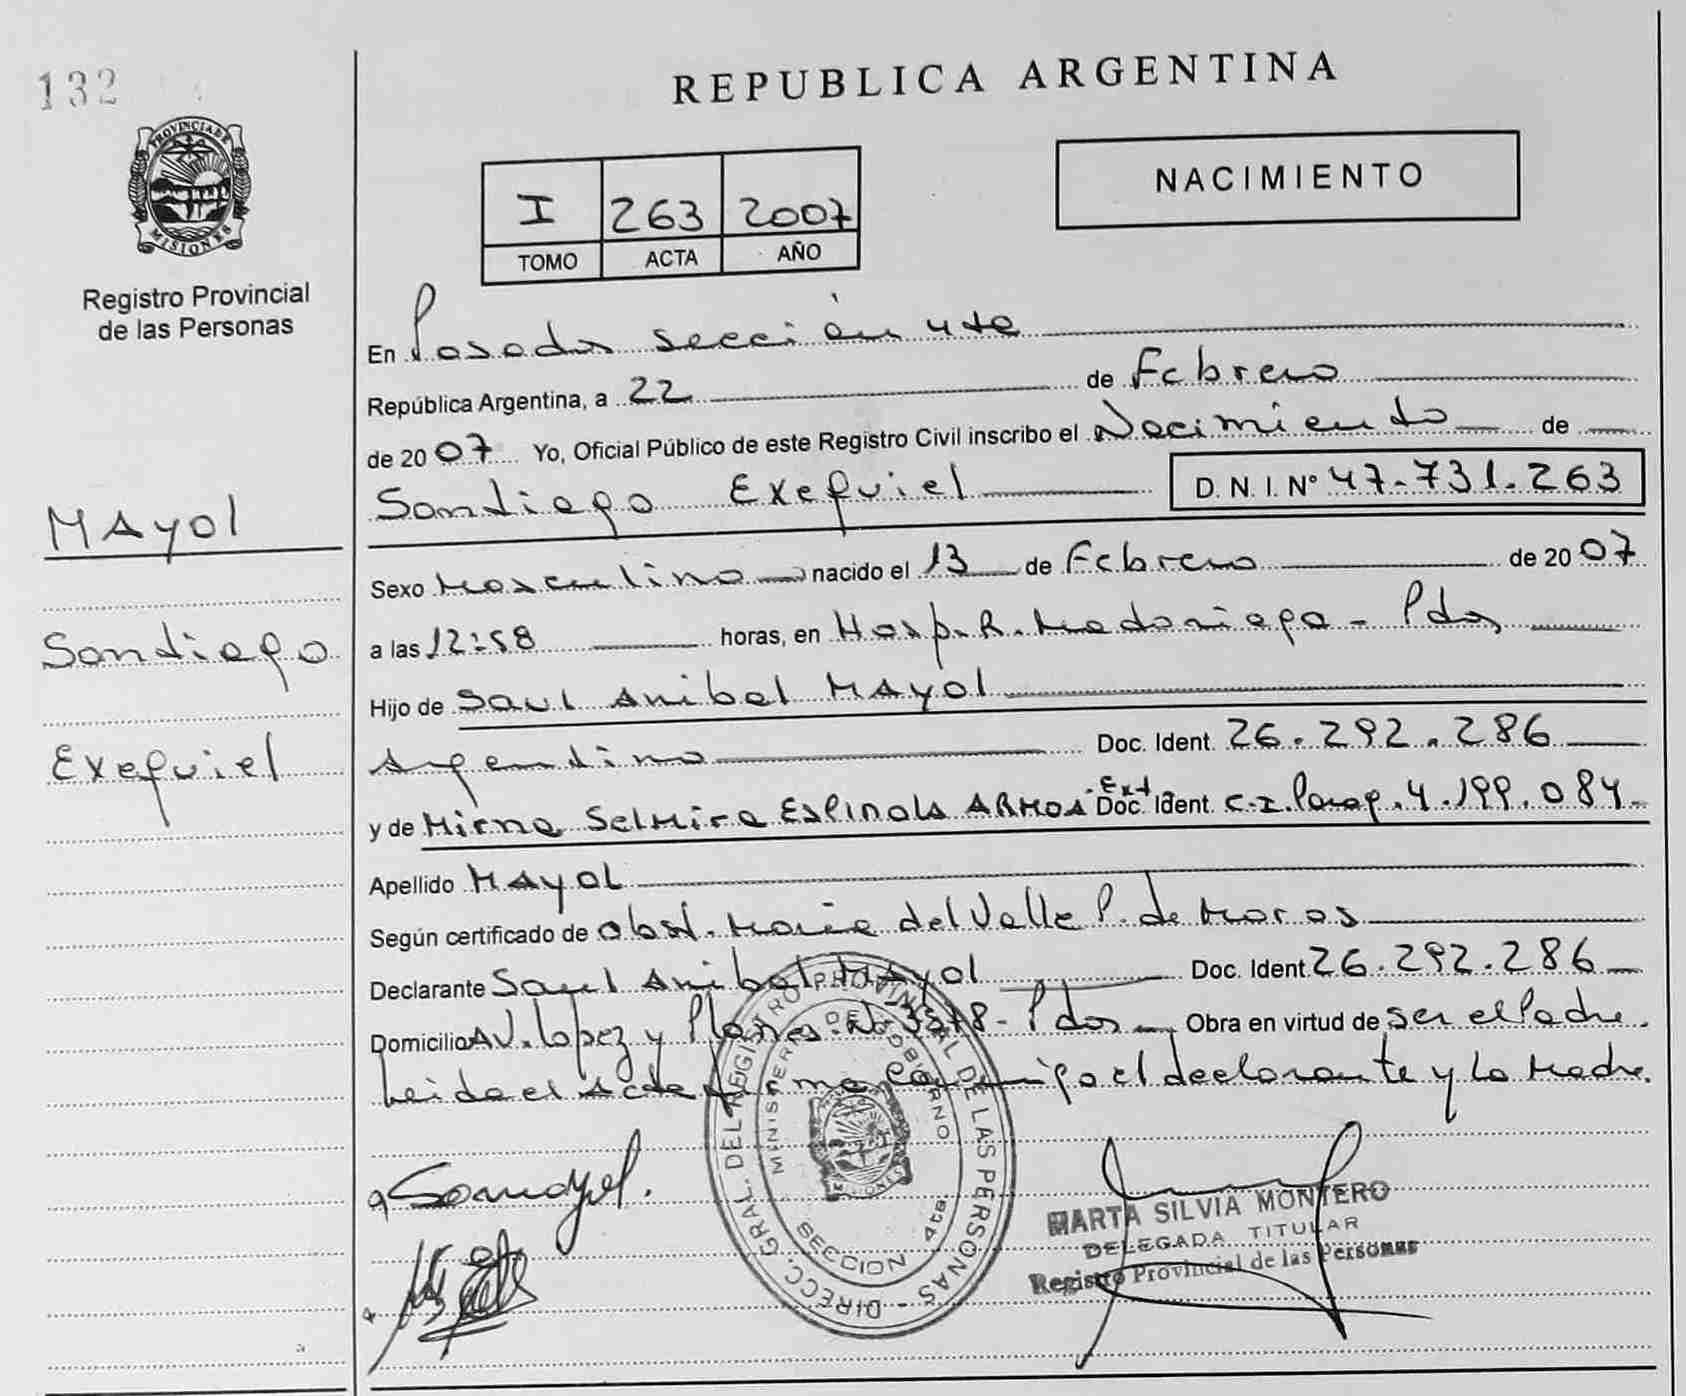 132
REPUBLICA ARGENTINA
PROVINCIA DE
MISIONES
Registro Provincial
de las Personas
I 263 2007
TOMO ACTA AÑO
NACIMIENTO
En Posadas sección 4ta
República Argentina, a 22 de Febrero
de 2007 Yo, Oficial Público de este Registro Civil inscribo el Nacimiento de
Santiago Exequiel D. N. I. Nº 47.731.263
MAyol
Santiago
Exequiel
Sexo Masculino nacido el 13 de Febrero de 2007
a las 12:58 horas, en Hosp. R. Madariaga - Pdas
Hijo de Saul Anibal MAyol
Argentino Doc. Ident. 26.292.286
y de Mirna Selmira ESPinola ARMOA Ext Doc. Ident. C.I. Parag. 4.199.084
Apellido MAyOL
Según certificado de obst. Maria del Valle P. de Moras
Declarante Saul Anibal MAyol Doc. Ident. 26.292.286
Domicilio AV. Lopez y Planes Nº 3878 - Pdas Obra en virtud de ser el Padre.
Leida el Acta firma conmigo el declarante y la Madre.
DIRECC. GRAL. DEL REGISTRO PROVINCIAL DE LAS PERSONAS
MINISTERIO DE GOBIERNO
SECCION 4ta.
MISIONES
MARTA SILVIA MONTERO
DELEGADA TITULAR
Registro Provincial de las Personas